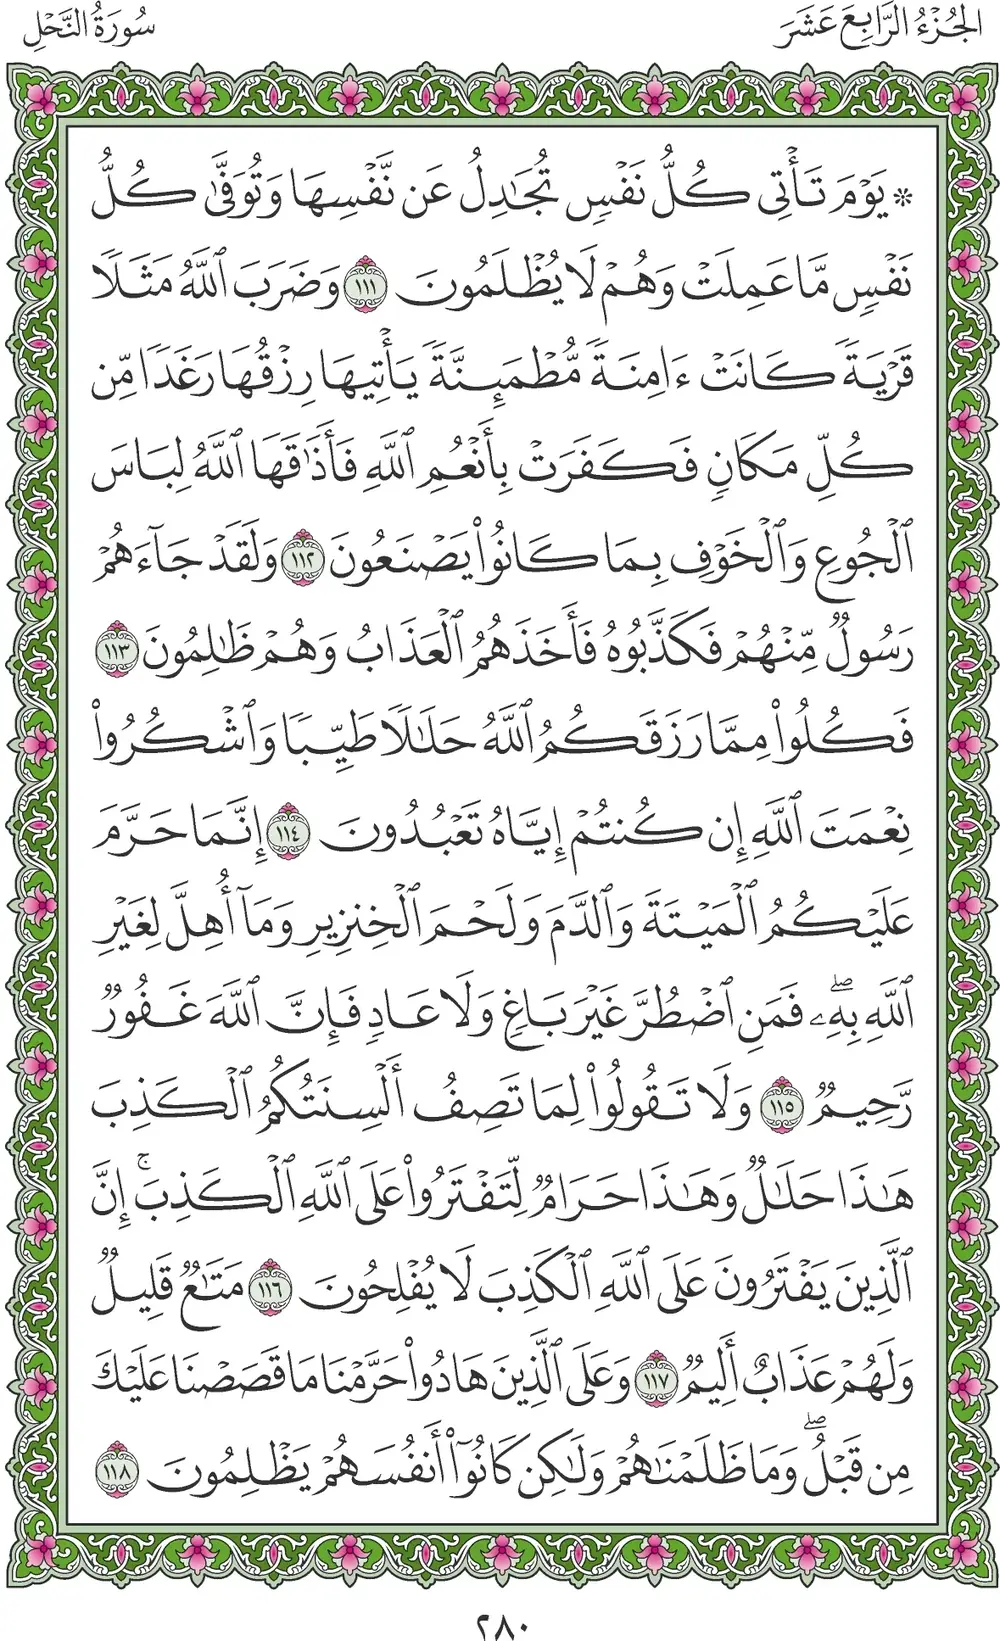 الجُزْءُ الرَّابِعَ عَشَرَ
سُورَةُ النَّحْلِ
۞ يَوْمَ تَأْتِى كُلُّ نَفْسٍ تُجَٰدِلُ عَن نَّفْسِهَا وَتُوَفَّىٰ كُلُّ
نَفْسٍ مَّا عَمِلَتْ وَهُمْ لَا يُظْلَمُونَ ١١١ وَضَرَبَ ٱللَّهُ مَثَلًا
قَرْيَةً كَانَتْ ءَامِنَةً مُّطْمَئِنَّةً يَأْتِيهَا رِزْقُهَا رَغَدًا مِّن
كُلِّ مَكَانٍ فَكَفَرَتْ بِأَنْعُمِ ٱللَّهِ فَأَذَٰقَهَا ٱللَّهُ لِبَاسَ
ٱلْجُوعِ وَٱلْخَوْفِ بِمَا كَانُوا۟ يَصْنَعُونَ ١١٢ وَلَقَدْ جَآءَهُمْ
رَسُولٌ مِّنْهُمْ فَكَذَّبُوهُ فَأَخَذَهُمُ ٱلْعَذَابُ وَهُمْ ظَٰلِمُونَ ١١٣
فَكُلُوا۟ مِمَّا رَزَقَكُمُ ٱللَّهُ حَلَٰلًا طَيِّبًا وَٱشْكُرُوا۟
نِعْمَتَ ٱللَّهِ إِن كُنتُمْ إِيَّاهُ تَعْبُدُونَ ١١٤ إِنَّمَا حَرَّمَ
عَلَيْكُمُ ٱلْمَيْتَةَ وَٱلدَّمَ وَلَحْمَ ٱلْخِنزِيرِ وَمَآ أُهِلَّ لِغَيْرِ
ٱللَّهِ بِهِۦۖ فَمَنِ ٱضْطُرَّ غَيْرَ بَاغٍ وَلَا عَادٍ فَإِنَّ ٱللَّهَ غَفُورٌ
رَّحِيمٌ ١١٥ وَلَا تَقُولُوا۟ لِمَا تَصِفُ أَلْسِنَتُكُمُ ٱلْكَذِبَ
هَٰذَا حَلَٰلٌ وَهَٰذَا حَرَامٌ لِّتَفْتَرُوا۟ عَلَى ٱللَّهِ ٱلْكَذِبَۚ إِنَّ
ٱلَّذِينَ يَفْتَرُونَ عَلَى ٱللَّهِ ٱلْكَذِبَ لَا يُفْلِحُونَ ١١٦ مَتَٰعٌ قَلِيلٌ
وَلَهُمْ عَذَابٌ أَلِيمٌ ١١٧ وَعَلَى ٱلَّذِينَ هَادُوا۟ حَرَّمْنَا مَا قَصَصْنَا عَلَيْكَ
مِن قَبْلُۖ وَمَا ظَلَمْنَٰهُمْ وَلَٰكِن كَانُوٓا۟ أَنفُسَهُمْ يَظْلِمُونَ ١١٨
٢٨٠